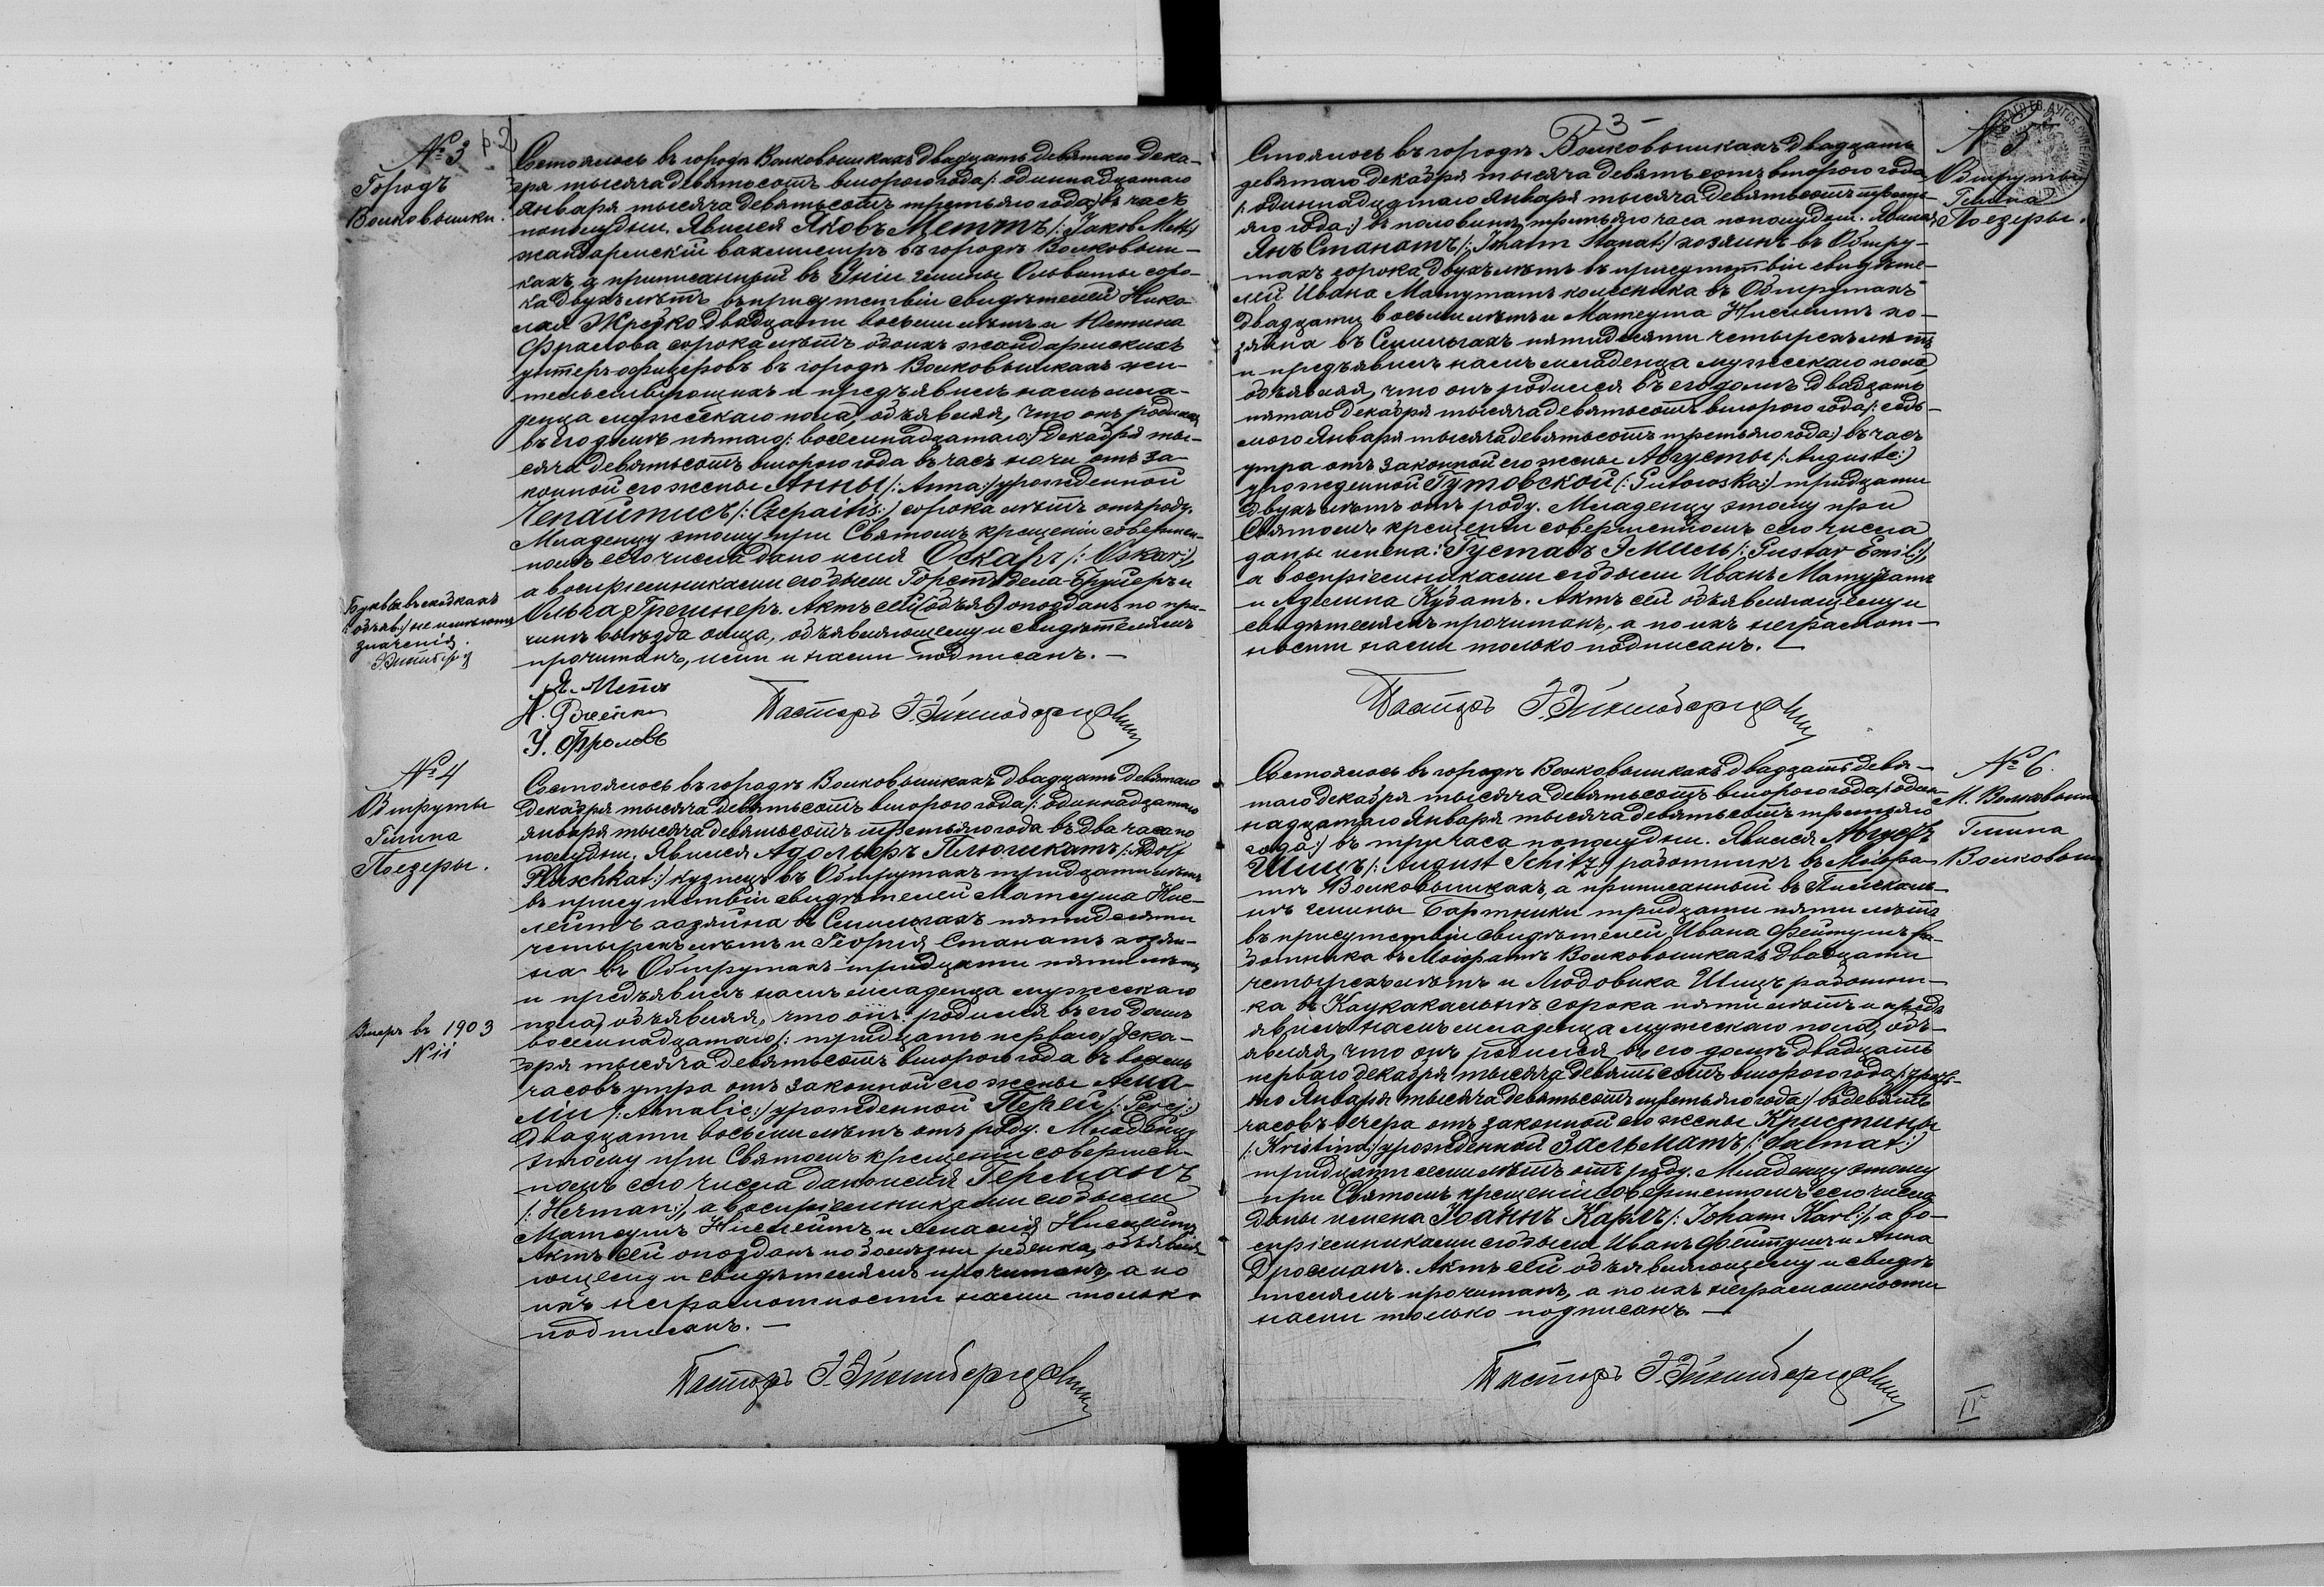 № 3
р. 2
Городъ
Волковышки.
Состоялось въ городѣ Волковышкахъ двадцать девятаго Дека-
бря тысяча девятьсотъ второго года /: одиннадцатаго
Января тысяча девятьсотъ третьяго года:/ въ часъ
пополудни. Явился Яковъ Меттъ /: Jakob Mett:/
жандармскій вахмистръ въ городѣ Волковыш-
кахъ, а приписанный въ гмины Ольвиты соро-
ка двухъ лѣтъ въ присутствіи свидѣтелей Нико-
лая двадцати восьми лѣтъ и Устина
Фралова сорока лѣтъ обоихъ жандармскихъ
унтеръ-офицеровъ въ городѣ Волковышкахъ жи-
тельствующихъ и предъявилъ намъ мла-
денца мужескаго пола, объявляя, что онъ родился
въ его домѣ пятаго /: восемнадцатаго:/ Декабря ты-
сяча девятьсотъ второго года въ часъ ночи отъ за-
конной его жены Анны /: Anna:/ урожденной
Чепайтисъ /: Czepaitis:/ сорока лѣтъ отъ роду.
Младенцу этому при Святомъ крещеніи совершен-
номъ сего числа дано имя Оскаръ /: Oskar:/,
а воспріемниками его были Горстъ дела-Бруйеръ и
Ольга Грешнеръ. Актъ сей (объяв) опозданъ по при-
чинѣ выѣзда отца, объявляющему и свидѣтелямъ
прочитанъ, ими и нами подписанъ. —
Буквы въ скобкахъ
/: объяв:/ не имѣютъ
значенія
Я. Меттъ
У. Фроловъ
Пасторъ
№ 4
Обшруты
Гмина
Поезеры.
Состоялось въ городѣ Волковышкахъ двадцать девятаго
Декабря тысяча девятьсотъ второго года /: одиннадцатаго
Января тысяча девятьсотъ третьяго года въ два часа по
полудни. Явился Адольфъ Плюшкатъ /: Adolf
Pluschkat:/ кузнецъ въ Обшрутахъ тридцати лѣтъ
въ присутствіи свидѣтелей Матеуша Нис-
лейтъ хозяина въ пятидесяти
четырехъ лѣтъ и Георгія Станатъ хозяи-
на въ Обшрутахъ тридцати пяти лѣтъ
и предъявилъ намъ младенца мужескаго
пола, объявляя, что онъ родился въ его домѣ
восемнадцатаго /: тридцать перваго:/ Дека-
бря тысяча девятьсотъ второго года въ восемь
часовъ утра отъ законной его жены Ама-
ліи /: Amalie:/ урожденной Перей /: Perej:/
двадцати восьми лѣтъ отъ роду. Младенцу
этому при Святомъ крещеніи совершен-
номъ сего числа дано имя Германъ
/: Herman:/, а воспріемниками его были
Матеушъ Нислейтъ и Амалія Нислейтъ
Актъ сей опозданъ по болѣзни ребенка, объявля-
ющему и свидѣтелямъ прочитанъ, а по
ихъ неграмотности нами только
подписанъ. —
Умеръ въ 1903
№ 11
Пасторъ
- 3 -
№ 5
Обшруты
Гмина
Поезеры.
Стоялось въ городѣ Волковышкахъ двадцать
девятаго декабря тысяча девятьсотъ второго года
/: одиннадцатаго Января тысяча девятьсотъ третья-
яго года:/ въ половинѣ третьяго часа пополудни. Явился
Янъ Станатъ /: Johann Stanat:/ хозяинъ въ Обшру-
тахъ сорока двухъ лѣтъ въ присутствіи свидѣте-
лей Ивана Матутатъ колесника въ Обшрутахъ
двадцати восьми лѣтъ и Матеуша Нислейтъ хо-
зяина въ пятидесяти четырехъ лѣтъ
и предъявилъ намъ младенца мужескаго пола
объявляя, что онъ родился въ его домѣ двадцать
пятаго декабря тысяча девятьсотъ второго года /: седь-
мого Января тысяча девятьсотъ третьяго года:/ въ часъ
утра отъ законной его жены Августы /: Auguste:/
урожденной Гутовской /: Gutowska:/ тридцати
двухъ лѣтъ отъ роду. Младенцу этому при
Святомъ крещеніи совершенномъ сего числа
даны имена: Густавъ Эмиль /: Gustav Emil:/,
а воспріемниками его были Иванъ Матутатъ
и Аделина Кудатъ. Актъ сей объявляющему и
свидѣтелямъ прочитанъ, а по ихъ неграмот-
ности нами только подписанъ. —
Пасторъ
№ 6.
М. Волковышки
Гмина
Волковышки
Состоялось въ городѣ Волковышкахъ двадцать девя-
таго декабря тысяча девятьсотъ второго года /: один-
надцатаго Января тысяча девятьсотъ третьяго
года:/ въ три часа пополудни. Явился Августъ
Шицъ /: August Schitz:/ работникъ въ Маіора-
тѣ Волковышкахъ, а приписанный въ
гмины Бартники тридцати пяти лѣтъ
въ присутствіи свидѣтелей Ивана Фейтушъ ра-
ботника въ Маіоратѣ Волковышкахъ двадцати
четырехъ лѣтъ и Людовика Шицъ работни-
ка въ сорока пяти лѣтъ и предъ-
явилъ намъ младенца мужескаго пола, объ-
являя, что онъ родился въ его домѣ двадцать
перваго декабря тысяча девятьсотъ второго года /: треть-
яго Января тысяча девятьсотъ третьяго года:/ въ девять
часовъ вечера отъ законной его жены Кристины
/: Kristina:/ урожденной Зальматъ /: Salmat:/
тридцати семи лѣтъ отъ роду. Младенцу этому
при Святомъ крещеніи совершенномъ сего числа
даны имена Іоаннъ Карлъ /: Johann Karl:/, а во-
спріемниками его были Иванъ Фейтушъ и Анна
Дросманъ. Актъ сей объявляющему и свидѣ-
телямъ прочитанъ, а по ихъ неграмотности
нами только подписанъ. —
Пасторъ
II